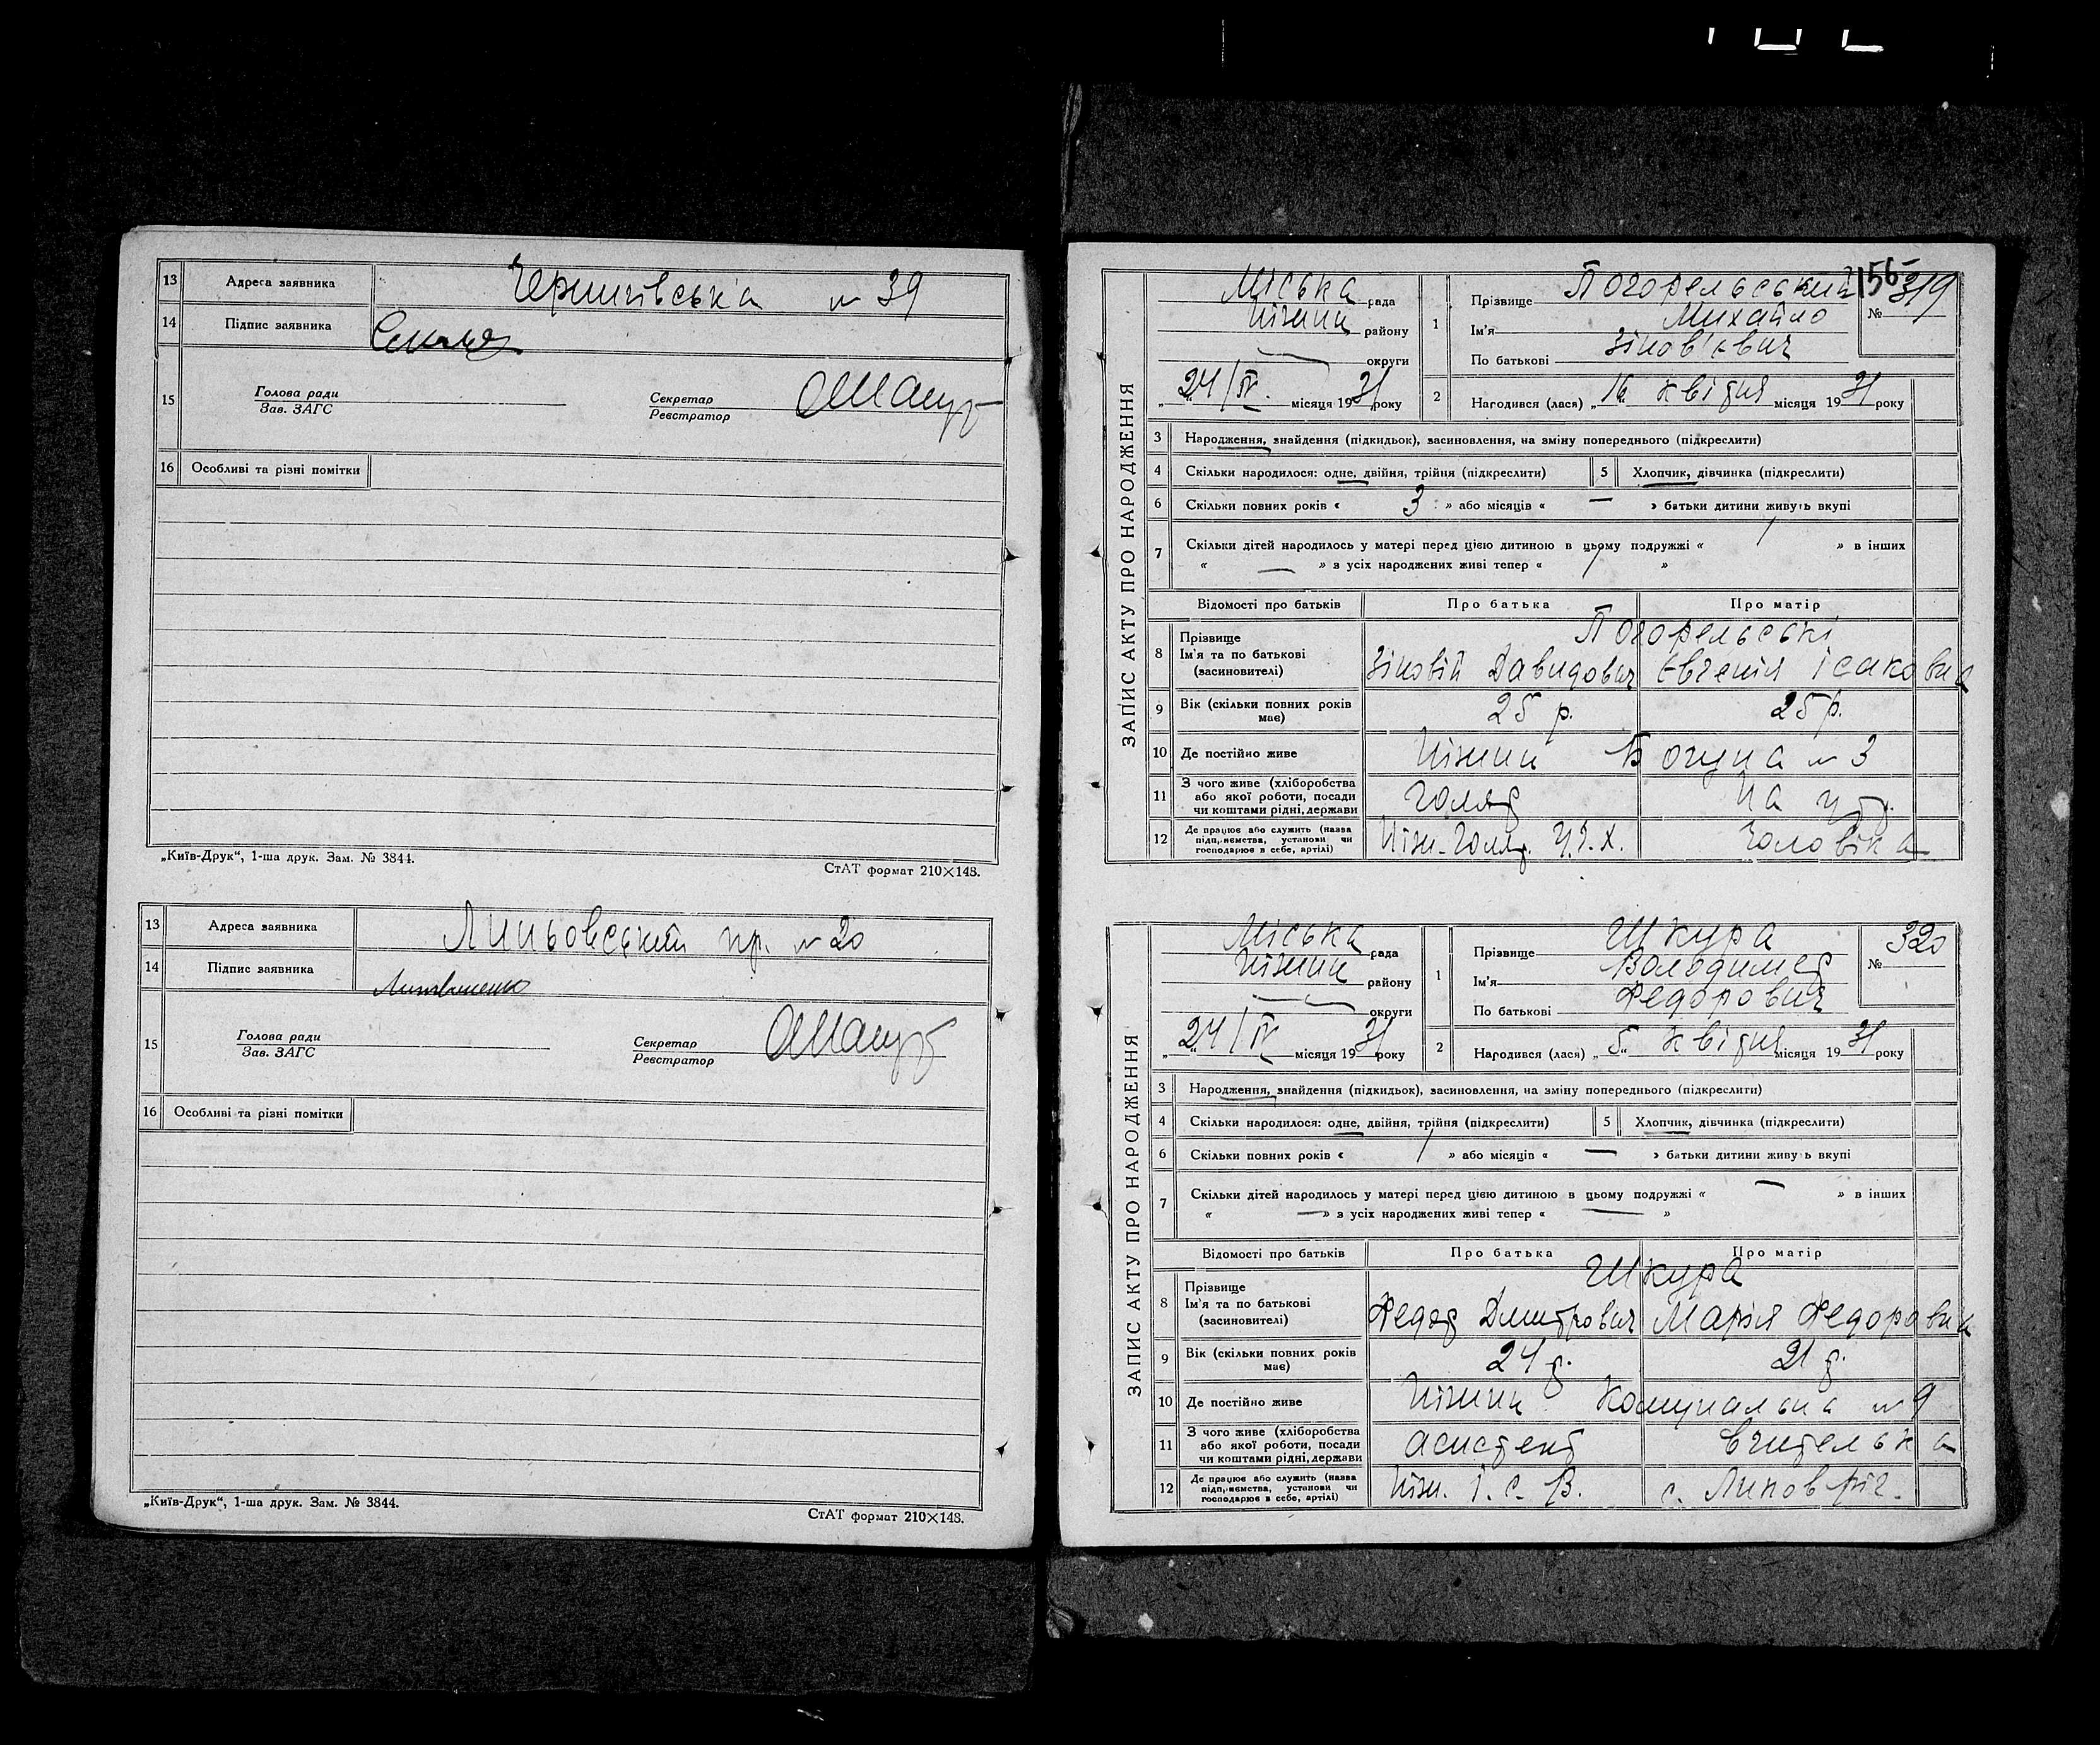 13 Адреса заявника Чернигівська № 39
14 Підпис заявника
15 Голова ради Зав. ЗАГС Секретар Реєстратор
16 Особливі та різні помітки
„Київ-Друк“, 1-ша друк. Зам. № 3844.
СтАТ формат 210×148.
13 Адреса заявника пр. № 20
14 Підпис заявника
15 Голова ради Зав. ЗАГС Секретар Реєстратор
16 Особливі та різні помітки
„Київ-Друк“, 1-ша друк. Зам. № 3844.
СтАТ формат 210×148.
156
ЗАПИС АКТУ ПРО НАРОДЖЕННЯ
Міська рада
Ніжин району
округи
„24/IV“ місяця 1931 року
1 Прізвище Погорельський
Ім'я Михайло
По батькові Зіновʼєвич
№ 319
2 Народився (лася) „16“ квітня місяця 1931 року
3 Народження, знайдення (підкидьок), засиновлення, на зміну попереднього (підкреслити)
4 Скільки народилося: одне, двійня, трійня (підкреслити) 5 Хлопчик, дівчинка (підкреслити)
6 Скільки повних років « 3 » або місяців « — » батьки дитини живуть вкупі
7 Скільки дітей народилось у матері перед цією дитиною в цьому подружжі « 1 » в інших
« — » з усіх народжених живі тепер « 1 »
Відомості про батьків Про батька Про матір
8 Прізвище Погорельські
Ім'я та по батькові (засиновителі) Зіновій Давидович Євгенія Ісаковна
9 Вік (скільки повних років має) 25 р. 25 р.
10 Де постійно живе Ніжин Богуна № 3
11 З чого живе (хліборобства або якої роботи, посади чи коштами рідні, держави голяр На утр.
12 Де працює або служить (назва підприємства, установи чи господарює в себе, артілі) Ніжн. Голяр. чоловіка
ЗАПИС АКТУ ПРО НАРОДЖЕННЯ
Міська рада
Ніжин району
округи
„24/IV“ місяця 1931 року
1 Прізвище Шкура
Ім'я Володимер
По батькові Федорович
№ 320
2 Народився (лася) „5“ квітня місяця 1931 року
3 Народження, знайдення (підкидьок), засиновлення, на зміну попереднього (підкреслити)
4 Скільки народилося: одне, двійня, трійня (підкреслити) 5 Хлопчик, дівчинка (підкреслити)
6 Скільки повних років « 1 » або місяців « — » батьки дитини живуть вкупі
7 Скільки дітей народилось у матері перед цією дитиною в цьому подружжі « — » в інших
« — » з усіх народжених живі тепер « — »
Відомості про батьків Про батька Про матір
8 Прізвище Шкура
Ім'я та по батькові (засиновителі) Федор Дмитрович Марія Федоровна
9 Вік (скільки повних років має) 24 р. 21 р.
10 Де постійно живе Ніжин Комунальна № 9
11 З чого живе (хліборобства або якої роботи, посади чи коштами рідні, держави асистент вчителька
12 Де працює або служить (назва підприємства, установи чи господарює в себе, артілі) Ніжн. І. С. В. с. Липов ріг.